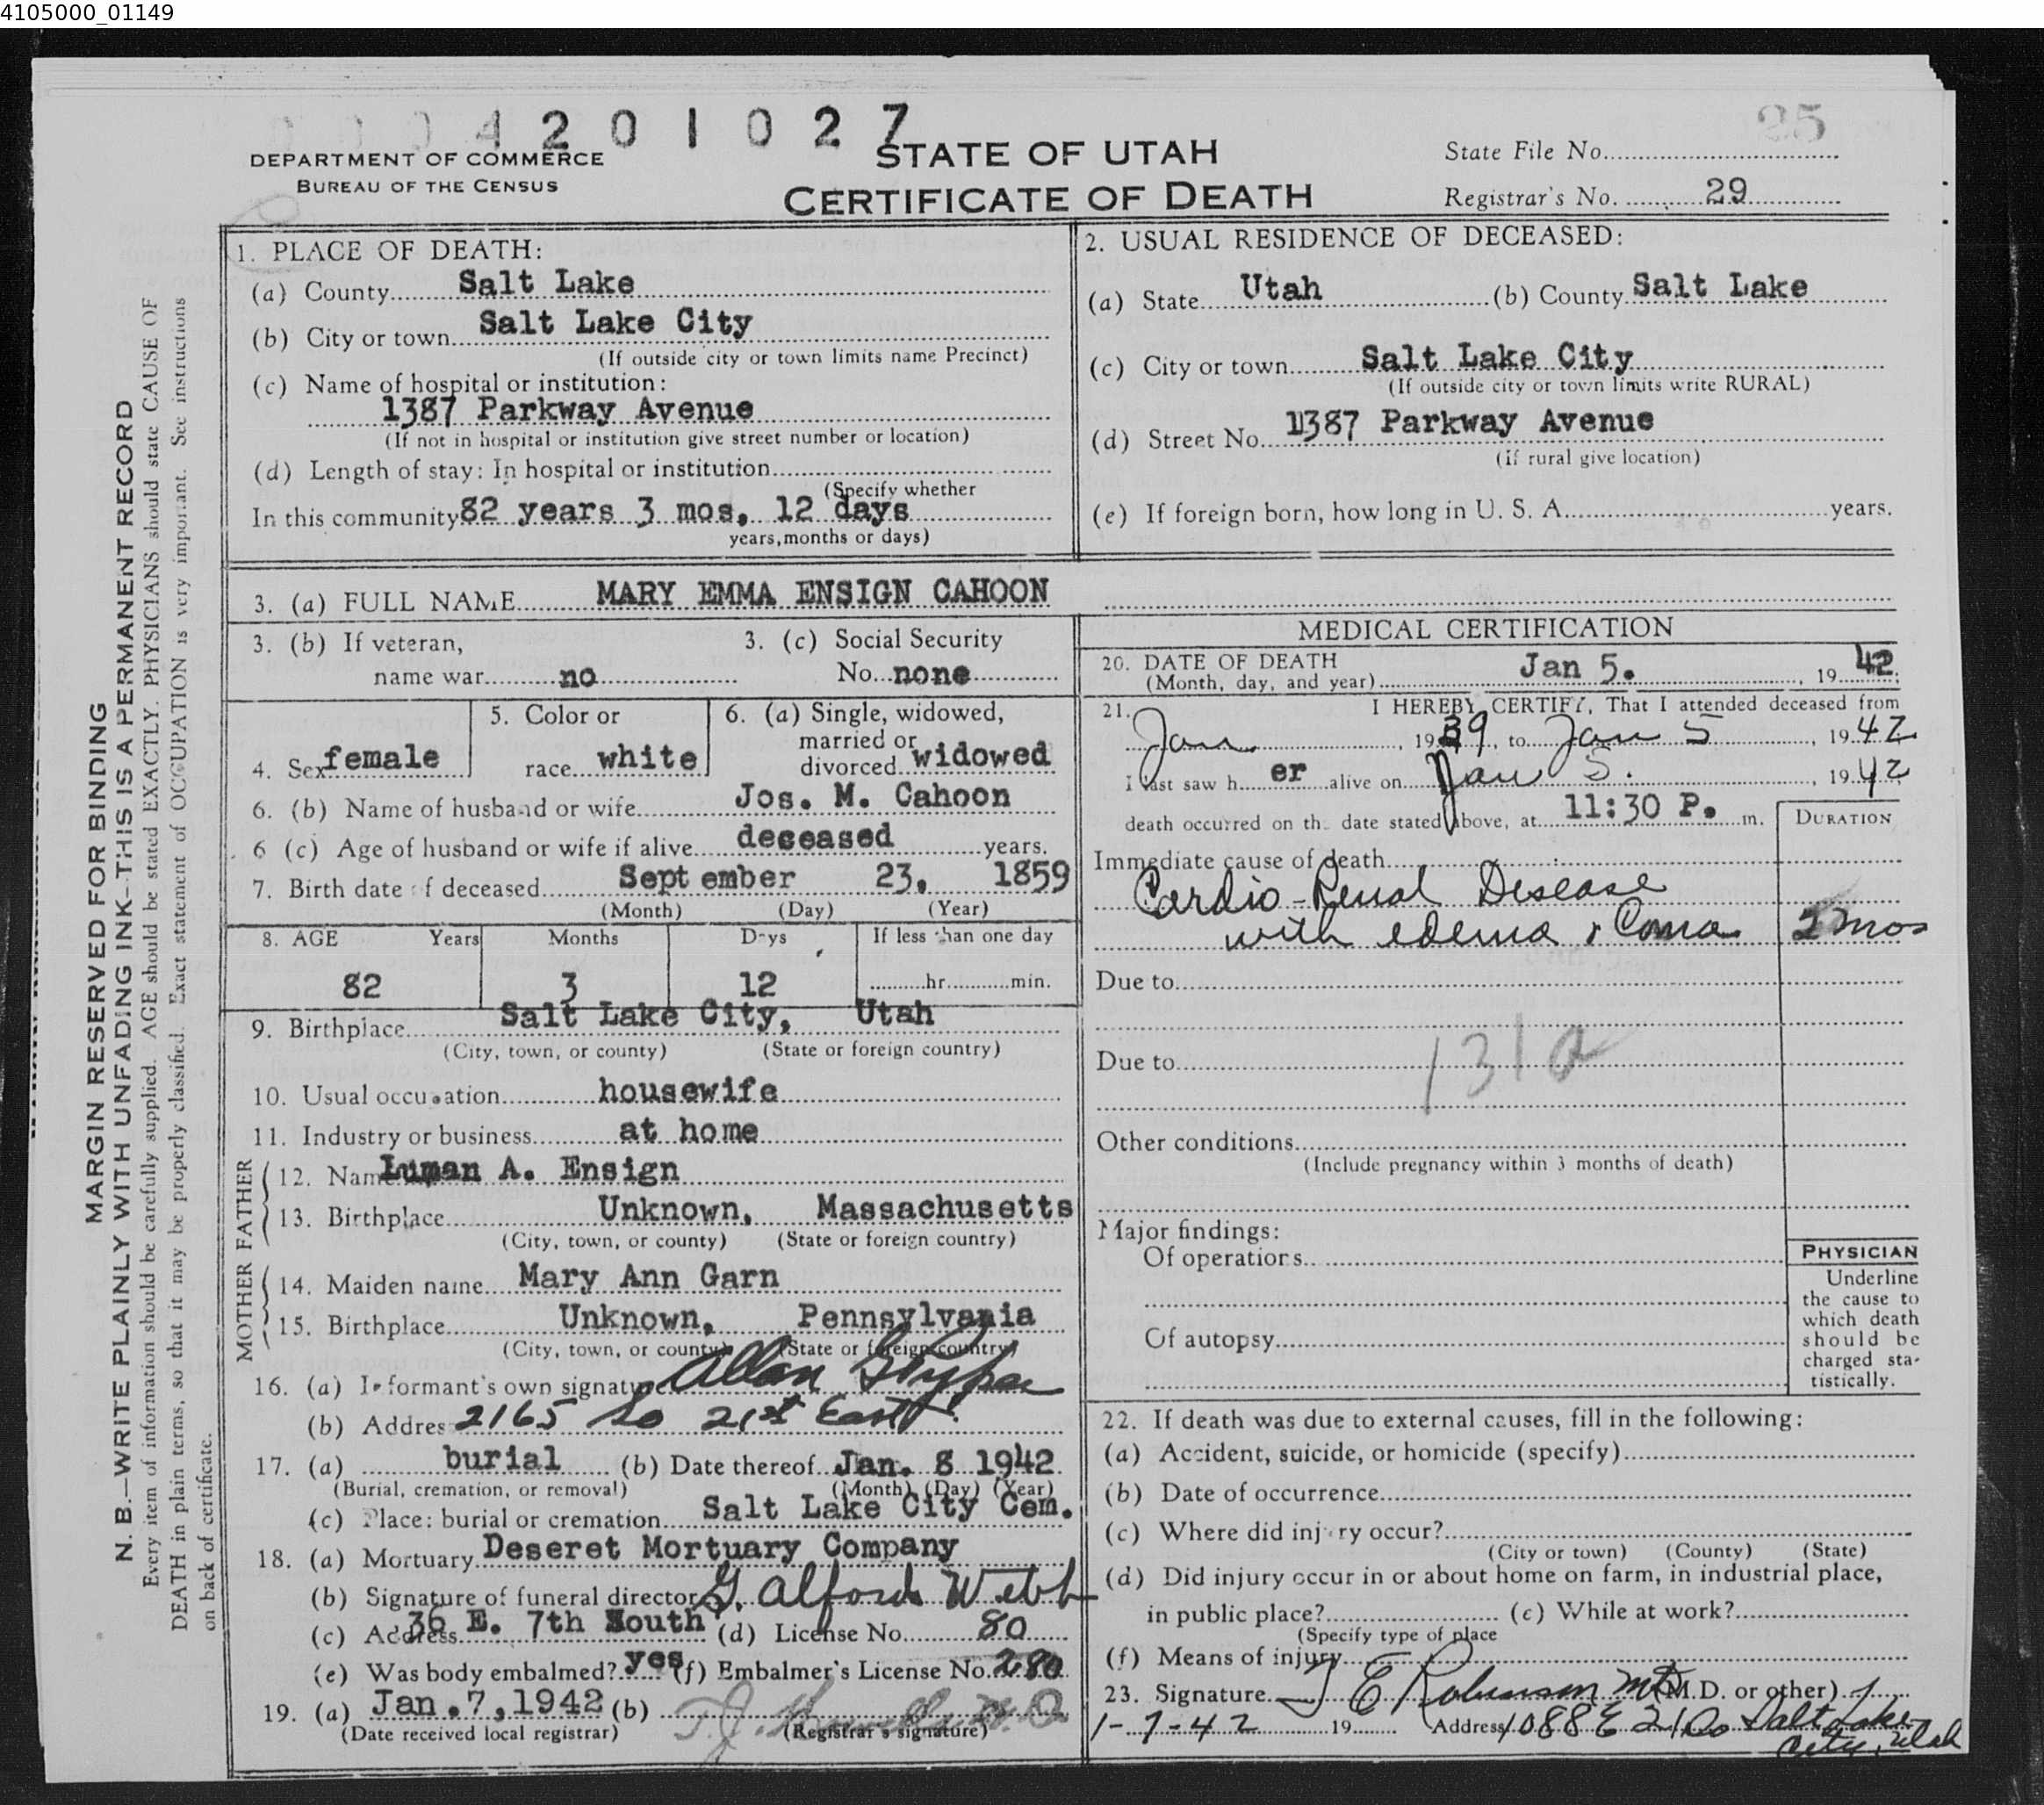 4105000_01149
4201027
25
DEPARTMENT OF COMMERCE
BUREAU OF THE CENSUS
STATE OF UTAH
CERTIFICATE OF DEATH
State File No.
Registrar's No. 29
MARGIN RESERVED FOR BINDING
N. B.—WRITE PLAINLY WITH UNFADING INK—THIS IS A PERMANENT RECORD
Every item of information should be carefully supplied. AGE should be stated EXACTLY. PHYSICIANS should state CAUSE OF
DEATH in plain terms, so that it may be properly classified. Exact statement of OCCUPATION is very important. See instructions
on back of certificate.
1. PLACE OF DEATH:
(a) County Salt Lake
(b) City or town Salt Lake City
(If outside city or town limits name Precinct)
(c) Name of hospital or institution:
1387 Parkway Avenue
(If not in hospital or institution give street number or location)
(d) Length of stay: In hospital or institution
(Specify whether
In this community 82 years 3 mos. 12 days
years, months or days)
2. USUAL RESIDENCE OF DECEASED:
(a) State Utah (b) County Salt Lake
(c) City or town Salt Lake City
(If outside city or town limits write RURAL)
(d) Street No. 1387 Parkway Avenue
(if rural give location)
(e) If foreign born, how long in U. S. A. years.
3. (a) FULL NAME MARY EMMA ENSIGN CAHOON
3. (b) If veteran, 3. (c) Social Security
name war no No. none
4. Sex female
5. Color or
race white
6. (a) Single, widowed,
married or
divorced widowed
6. (b) Name of husband or wife Jos. M. Cahoon
6 (c) Age of husband or wife if alive deceased years.
7. Birth date of deceased September 23, 1859
(Month) (Day) (Year)
8. AGE Years Months Days If less than one day
82 3 12 hr. min.
9. Birthplace Salt Lake City, Utah
(City, town, or county) (State or foreign country)
10. Usual occupation housewife
11. Industry or business at home
FATHER
12. Name Luman A. Ensign
13. Birthplace Unknown, Massachusetts
(City, town, or county) (State or foreign country)
MOTHER
14. Maiden name Mary Ann Garn
15. Birthplace Unknown, Pennsylvania
(City, town, or county) (State or foreign country)
16. (a) Informant's own signature Allan
(b) Address 2165 So 21st East
17. (a) burial (b) Date thereof Jan. 8 1942
(Burial, cremation, or removal) (Month) (Day) (Year)
(c) Place: burial or cremation Salt Lake City Cem.
18. (a) Mortuary Deseret Mortuary Company
(b) Signature of funeral director G. Alford Webb
(c) Address 36 E. 7th South (d) License No. 80
(e) Was body embalmed? yes (f) Embalmer's License No. 280
19. (a) Jan. 7, 1942 (b) T.J.
(Date received local registrar) (Registrar's signature)
MEDICAL CERTIFICATION
20. DATE OF DEATH
(Month, day, and year) Jan 5. , 19 42
21. I HEREBY CERTIFY, That I attended deceased from
Jan , 19 39, to Jan 5 , 19 42
I last saw h er alive on Jan 5. , 19 42
death occurred on the date stated above, at 11:30 P. m.
DURATION
Immediate cause of death
Cardio-Renal Disease
with edema & Coma 2 mos
Due to
Due to
131a
Other conditions
(Include pregnancy within 3 months of death)
Major findings:
Of operations
Of autopsy
PHYSICIAN
Underline
the cause to
which death
should be
charged sta-
tistically.
22. If death was due to external causes, fill in the following:
(a) Accident, suicide, or homicide (specify)
(b) Date of occurrence
(c) Where did injury occur?
(City or town) (County) (State)
(d) Did injury occur in or about home on farm, in industrial place,
in public place? (e) While at work?
(Specify type of place
(f) Means of injury
23. Signature J E Robinson MD (M.D. or other)
1-7-42 19 Address 1088 E 21 So Salt Lake
City, Utah